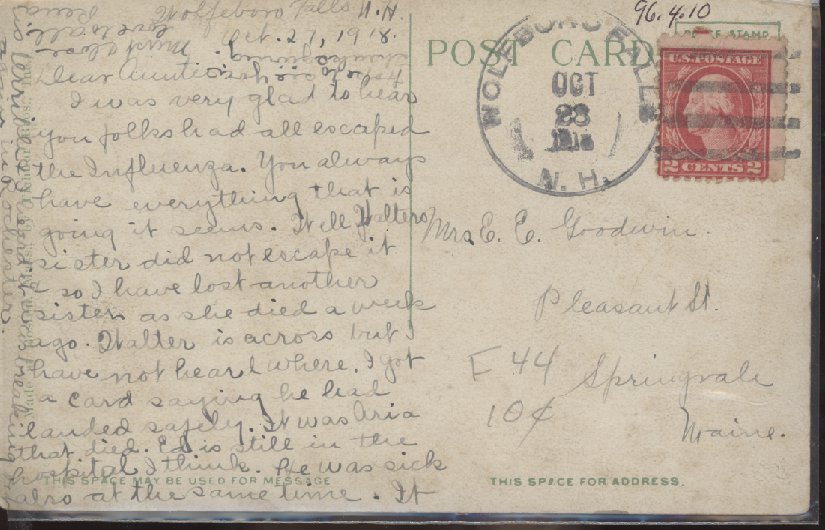 96.4.10
Wolfeboro Falls N.H.
Oct. 27, 1918.
Dear Auntie
I was very glad to hear
you folks had all escaped
the Influenza. You always
have everything that is
going it seems. Well Walters
sister did not escape it
& so I have lost another
sister as she died a week
ago. Walter is across but I
have not heard where. I got
a card saying he had
landed safely. It was Aria
that died. Ed is still in the
hospital I think. He was sick
also at the same time. It
Must close
Love to all
POST CARD
PLACE STAMP
WOLFEBORO FALLS
OCT
28
1918
N. H.
U.S. POSTAGE
2 CENTS 2
Mrs. E. E. Goodwin.
Pleasant St.
Springvale
Maine.
E 44
10¢
THIS SPACE MAY BE USED FOR MESSAGE
THIS SPACE FOR ADDRESS.